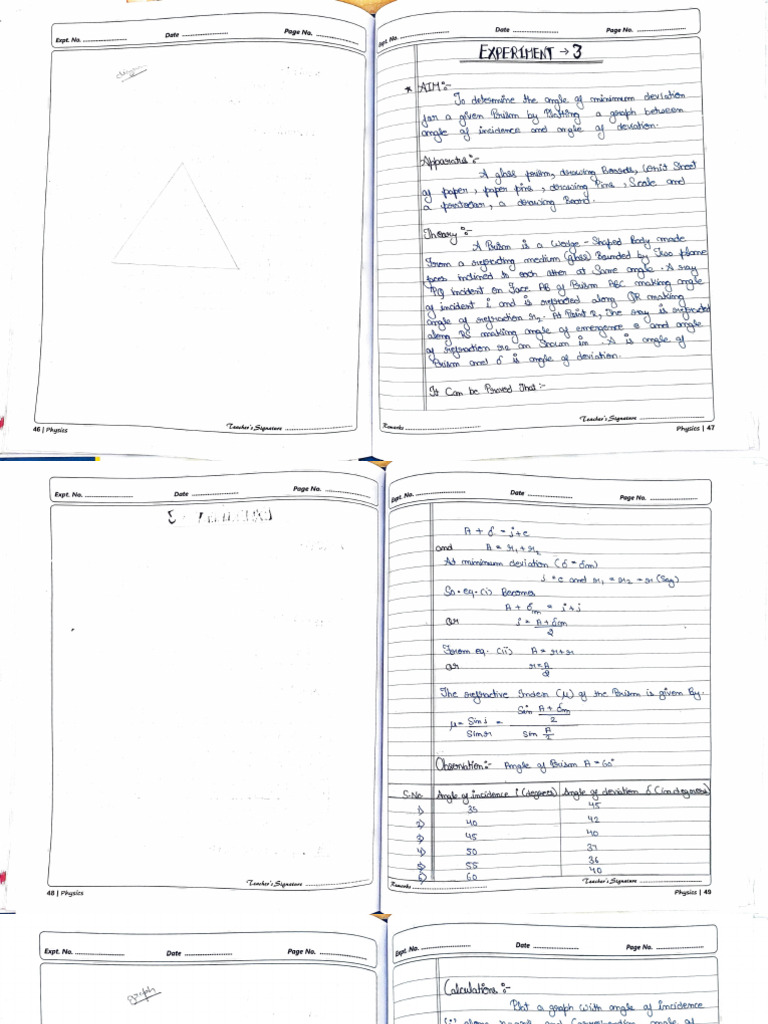 Expt. No. Date Page No.
diagram
Teacher's Signature
46 | Physics
Expt. No. Date Page No.
EXPERIMENT → 3
* AIM:-
To determine the angle of minimum deviation
for a given Prism by Plotting a graph between
angle of incidence and angle of deviation.
Apparatus:-
A glass prism, drawing Boards, White Sheet
of paper, paper pins, drawing Pins, Scale and
a protractor, a drawing Board.
Theory:-
A Prism is a Wedge-Shaped Body made
From a refracting medium (glass) Bounded by Two plane
faces inclined to each other at Same angle. A ray
PQ incident on Face AB of Prism ABC making angle
of incident i and is refracted along QR making
angle of refraction r2. At Point R, The ray is refracted
along RS making angle of emergence e and angle
of refraction r2 an Shown in . A is angle of
Prism and δ is angle of deviation.
It Can be Proved That:-
Remarks Teacher's Signature
Physics | 47
Expt. No. Date Page No.
Teacher's Signature
48 | Physics
Expt. No. Date Page No.
A + δ = i+e
and A = r1+r2
At minimum deviation (δ = δm)
i = e and r1 = r2 = r (Say)
So. eq. (i) Becomes
A + δm = i+i
or i = A+δm / 2
From eq. (ii) A = r+r
or r = A / 2
The refractive Index (μ) of the Prism is given By.
μ = Sin i / Sin r = Sin A+δm / 2 / Sin A / 2
Observation:- Angle of Prism A = 60°
S.No Angle of incidence i (degrees) Angle of deviation δ (in degrees)
1) 35 45
2) 40 42
3) 45 40
4) 50 37
5) 55 36
6) 60 40
Remarks Teacher's Signature
Physics | 49
Expt. No. Date Page No.
graph
Expt. No. Date Page No.
Calculations:-
Plot a graph with angle of incidence